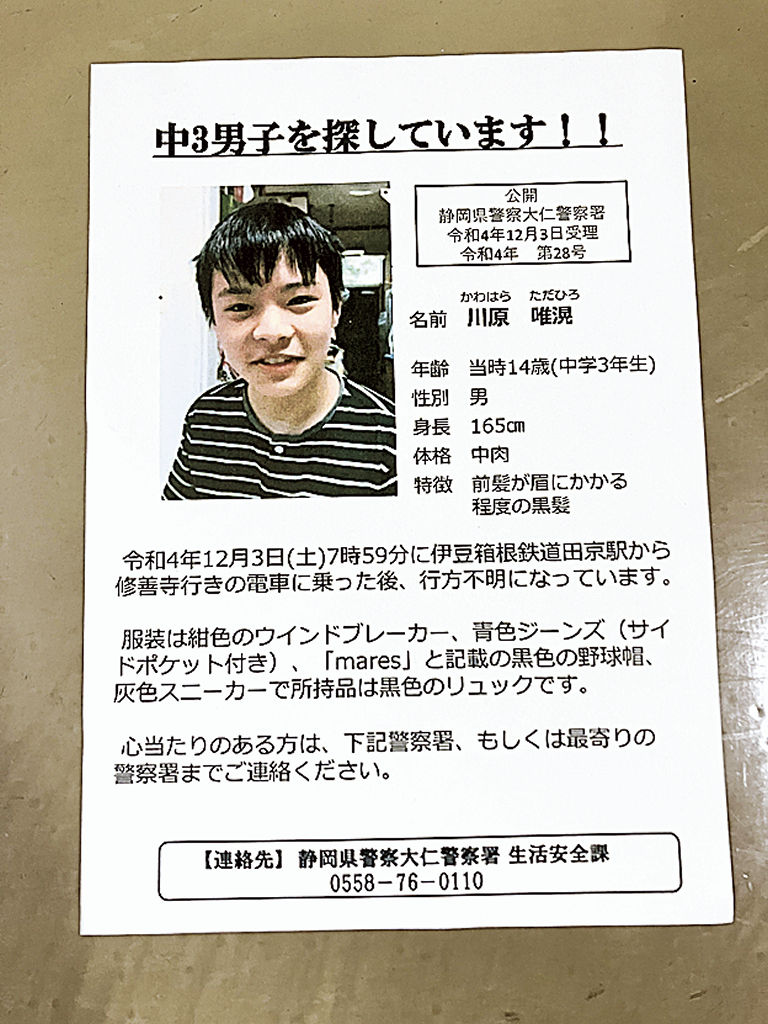 中3男子を探しています!!
公開
静岡県警察大仁警察署
令和4年12月3日受理
令和4年 第28号
かわはら ただひろ
名前 川原 唯滉
年齢 当時14歳(中学3年生)
性別 男
身長 165㎝
体格 中肉
特徴 前髪が眉にかかる
程度の黒髪
令和4年12月3日(土)7時59分に伊豆箱根鉄道田京駅から
修善寺行きの電車に乗った後、行方不明になっています。
服装は紺色のウインドブレーカー、青色ジーンズ(サイ
ドポケット付き)、「mares」と記載の黒色の野球帽、
灰色スニーカーで所持品は黒色のリュックです。
心当たりのある方は、下記警察署、もしくは最寄りの
警察署までご連絡ください。
【連絡先】静岡県警察大仁警察署 生活安全課
0558-76-0110